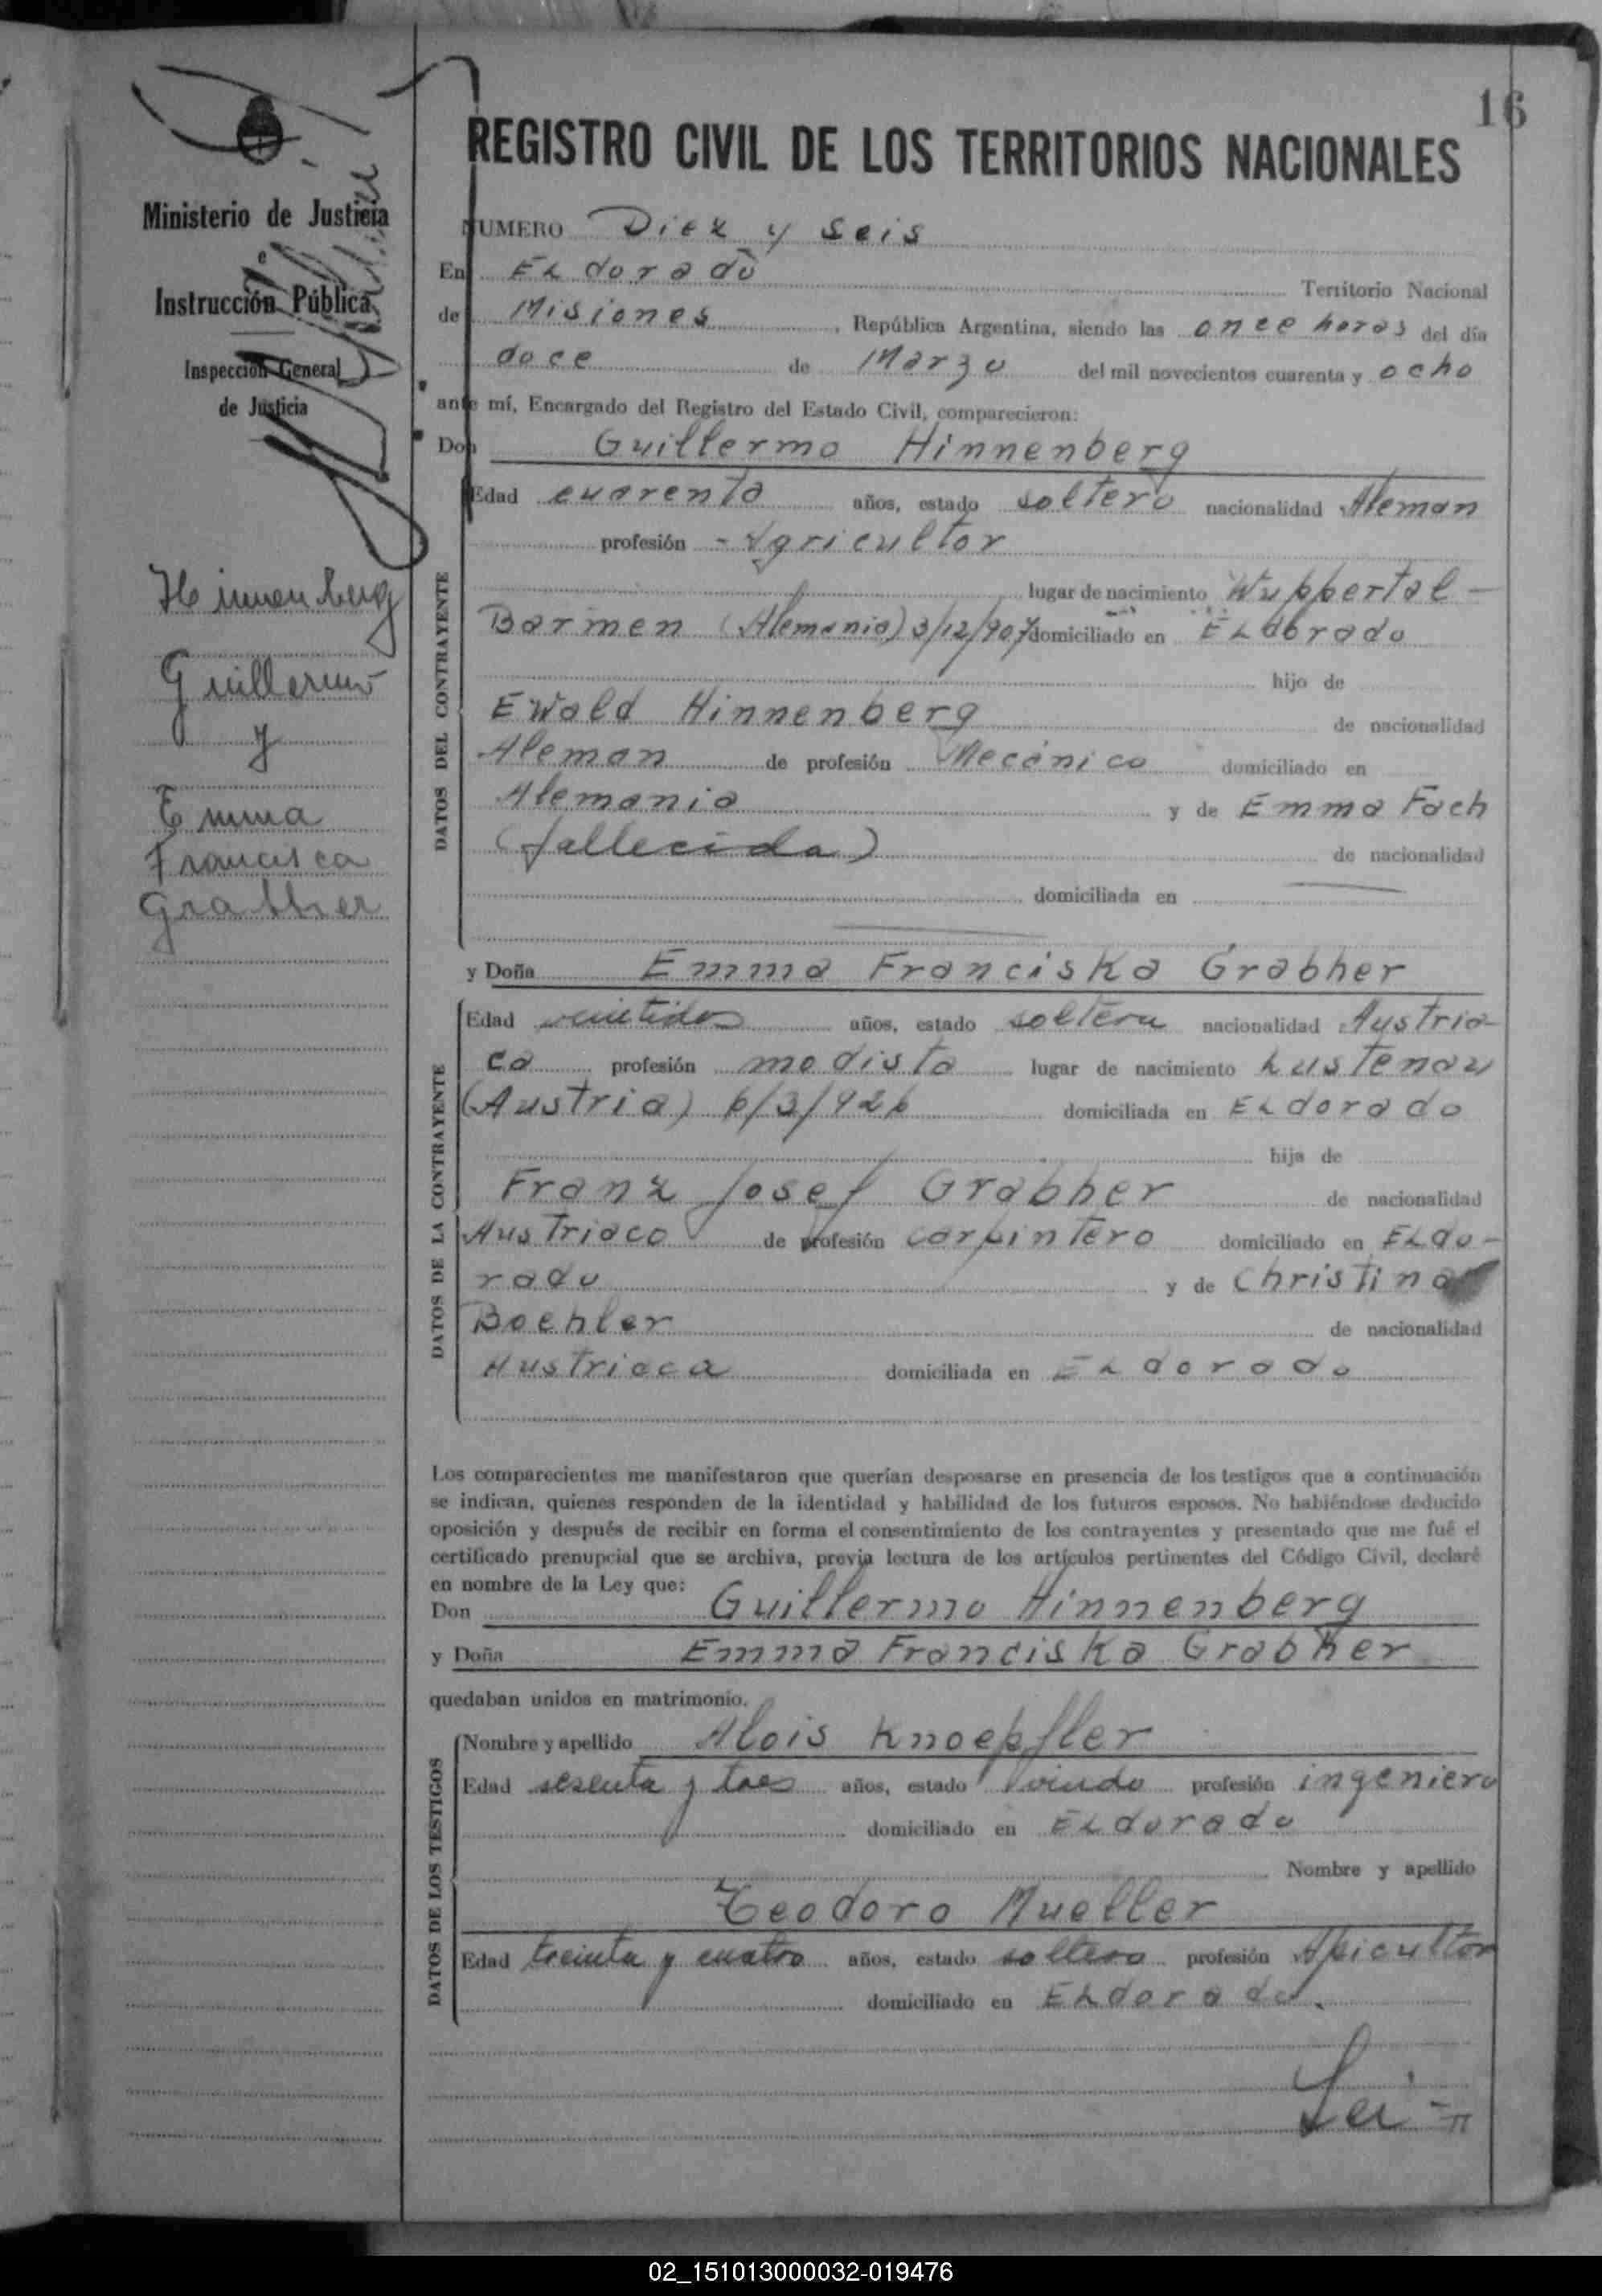 16
REGISTRO CIVIL DE LOS TERRITORIOS NACIONALES
Ministerio de Justicia
e
Instrucción Pública
Inspección General
de Justicia
NUMERO Diez y seis
En ELdorado Territorio Nacional
de Misiones, República Argentina, siendo las once horas del día
doce de Marzo del mil novecientos cuarenta y ocho
ante mí, Encargado del Registro del Estado Civil, comparecieron:
Don Guillermo Hinnenberg
Edad cuarenta años, estado soltero nacionalidad Aleman
profesión Agricultor
lugar de nacimiento Wuppertal-
Barmen (Alemania) 3/12/907 domiciliado en ELdorado
hijo de
Ewald Hinnenberg de nacionalidad
Aleman de profesión Mecánico domiciliado en
Alemania y de Emma Fach
(fallecida) de nacionalidad
domiciliada en
DATOS DEL CONTRAYENTE
Hinnenberg
Guillermo
y
Emma
Francisca
Grabher
y Doña Emma Franciska Grabher
Edad veintidos años, estado soltera nacionalidad Austria-
ca profesión modista lugar de nacimiento Lustenau
(Austria) 6/3/926 domiciliada en ELdorado
hija de
Franz Josef Grabher de nacionalidad
Austriaco de profesión carpintero domiciliado en ELdo-
rado y de Christina
Boehler de nacionalidad
Austriaca domiciliada en ELdorado
DATOS DE LA CONTRAYENTE
Los comparecientes me manifestaron que querían desposarse en presencia de los testigos que a continuación
se indican, quienes responden de la identidad y habilidad de los futuros esposos. No habiéndose deducido
oposición y después de recibir en forma el consentimiento de los contrayentes y presentado que me fué el
certificado prenupcial que se archiva, previa lectura de los artículos pertinentes del Código Civil, declaré
en nombre de la Ley que:
Don Guillermo Hinnenberg
y Doña Emma Franciska Grabher
quedaban unidos en matrimonio.
Nombre y apellido Alois Knoepfler
Edad sesenta y tres años, estado viudo profesión ingeniero
domiciliado en ELdorado
Nombre y apellido
Teodoro Mueller
Edad treinta y cuatro años, estado soltero profesión Apicultor
domiciliado en ELdorado.
DATOS DE LOS TESTIGOS
02_151013000032-019476